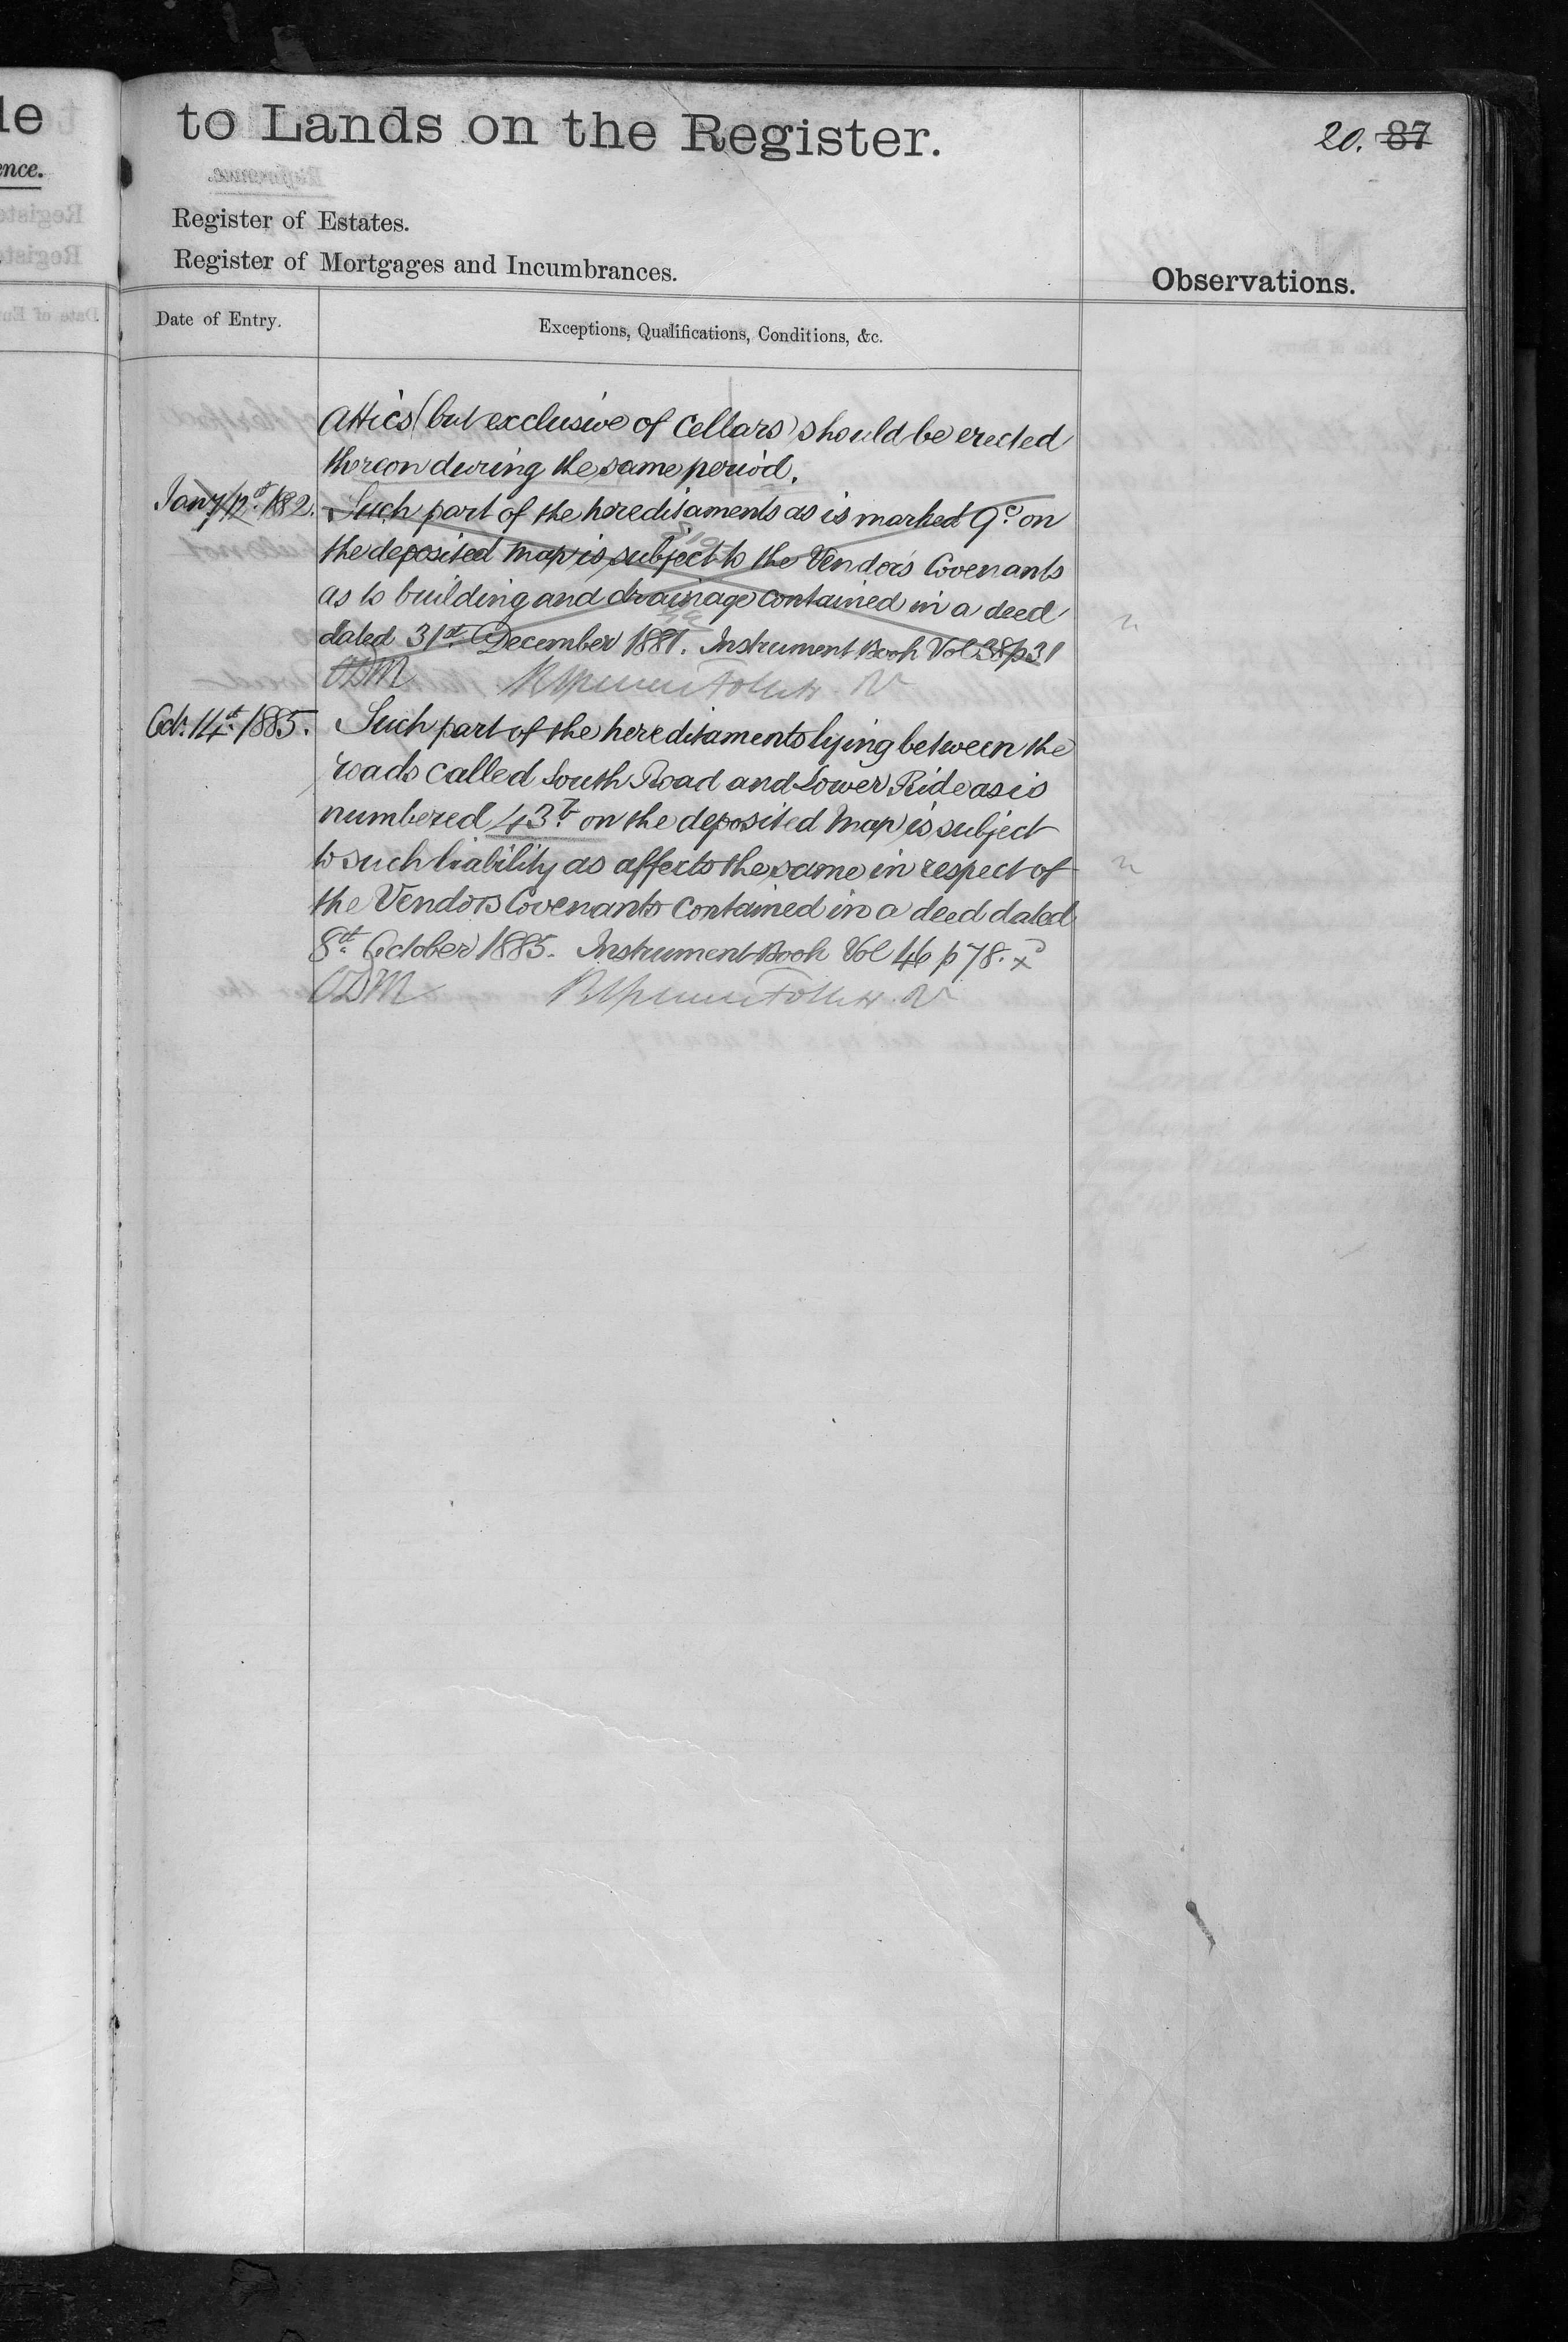 le
to Lands on the Register.
20. 87
ence.
Register of Estates.
Register of Mortgages and Incumbrances.
Observations.
Date of Entry.
Exceptions, Qualifications, Conditions, &c.
Attics (but exclusive of Cellars) should be erected
thereon during the same period.
Jany 12th 1882. Such part of the hereditaments as is marked 9c on
the deposited Map is subject to the Vendors Covenants
as to building and drainage contained in a deed
dated 31st December 1881. Instrument Book Vol 38 p 31
Oct. 14th 1885. Such part of the hereditaments lying between the
roads called South Road and Lower Ride as is
numbered 43b on the deposited Map is subject
to such liability as affects the same in respect of
the Vendors Covenants contained in a deed dated
8th October 1885. Instrument Book Vol 46 p 78. x